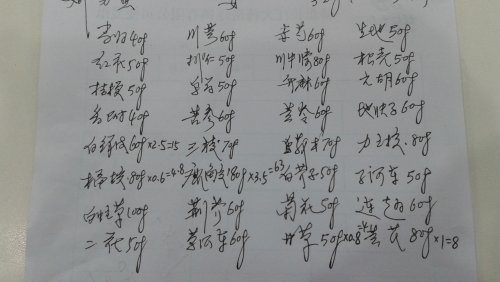 当归40g 川芎60g 赤芍60g 生地50g
红花50g 桃仁50g 川牛膝80g 枳壳50g
桔梗50g 50g 升麻60g 元胡60g
香附40g 苦参60g 黄芩60g 地肤子60g
白鲜皮60g×2.5=15 三棱70g 70g 80g
80g×0.6=4.8 180g×3.5=63 白芥子50g 河车50g
草100g 荆芥60g 菊花50g 连翘60g
二花50g 草河车60g 甘草50g×0.8 黄芪80g×1=8